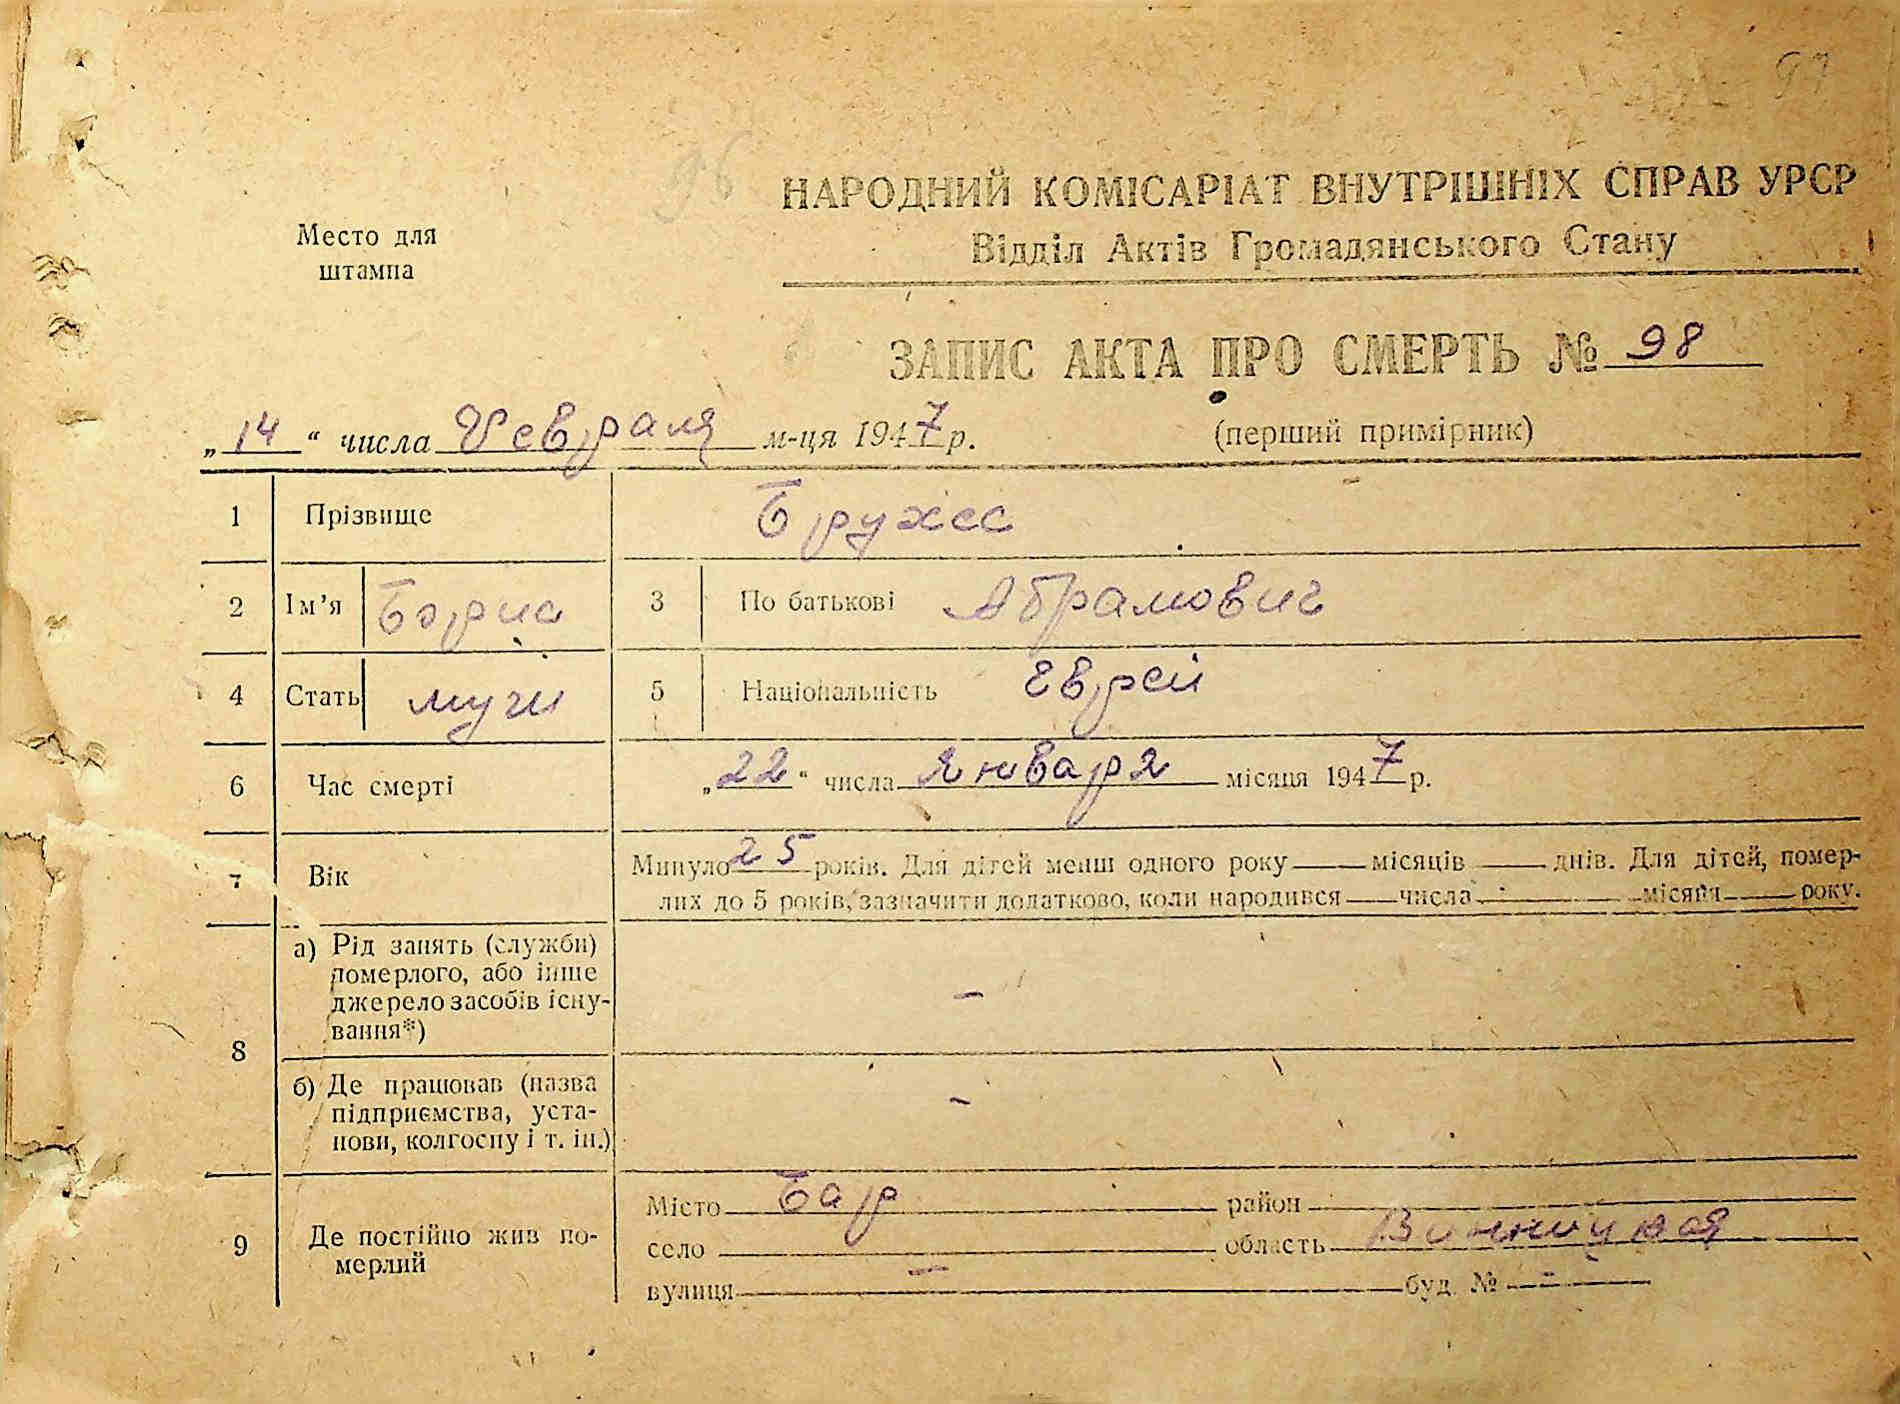 97
96
НАРОДНИЙ КОМІСАРІАТ ВНУТРІШНІХ СПРАВ УРСР
Відділ Актів Громадянського Стану
Место для
штампа
ЗАПИС АКТА ПРО СМЕРТЬ № 98
„14“ числа Февраля м-ця 1947 р.
(перший примірник)
1 Прізвище
2 Ім’я Борис 3 По батькові Абрамович
4 Стать 5 Національність Еврей
6 Час смерті „22“ числа Января місяця 1947 р.
7 Вік Минуло 25 років. Для дітей менш одного року — місяців — днів. Для дітей, помер-
лих до 5 років, зазначити додатково, коли народився — числа — місяця — року.
8 а) Рід занять (служби)
померлого, або інше
джерело засобів існу-
вання*) –
б) Де працював (назва
підприємства, уста-
нови, колгоспу і т. ін.) –
9 Де постійно жив по-
мерлий
Місто Бар район
село область Винницкая
вулиця – буд. № –